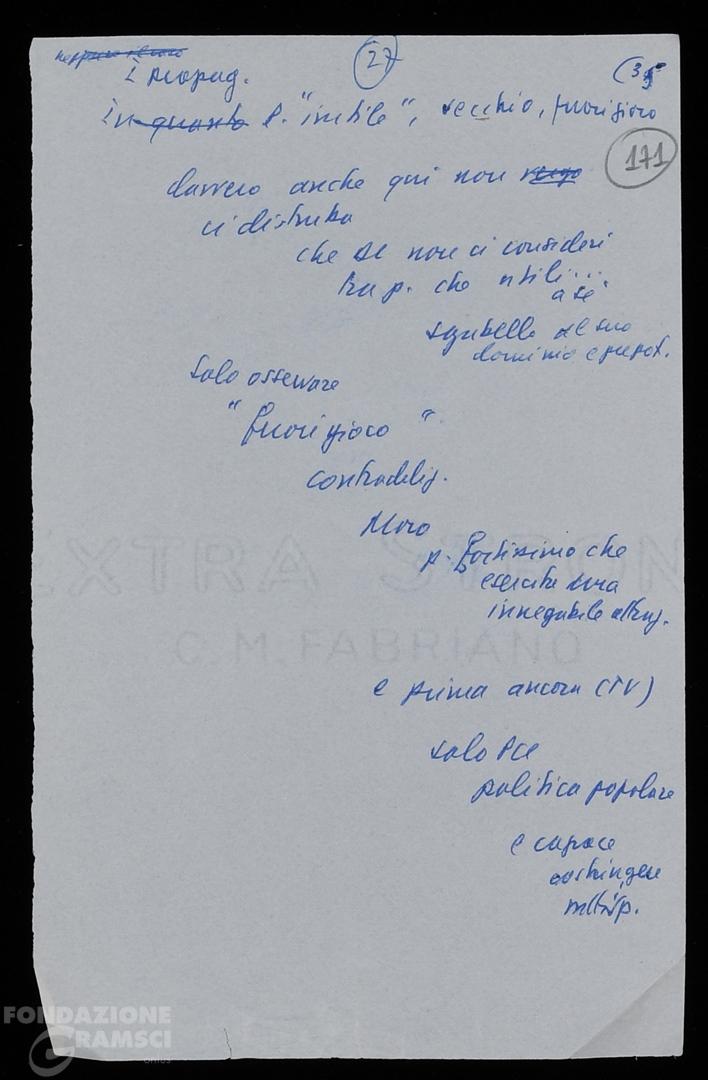 27
(35
è propag.
in quanto P. "inutile", vecchio, fuori gioco
171
davvero anche qui non
ci disturba
che DC non ci consideri
tra p. che utili...
a sé
sgabello al suo
dominio e prepot.
Solo osservare
"fuori gioco"
contraddiz.
Moro
p. fortissimo che
esercita una
innegabile attraz.
e prima ancora (TV)
solo PCI
politica popolare
e capace
costringere
altri p.
EXTRA STRON
C.M. FABRIANO
FONDAZIONE
GRAMSCI
onlus